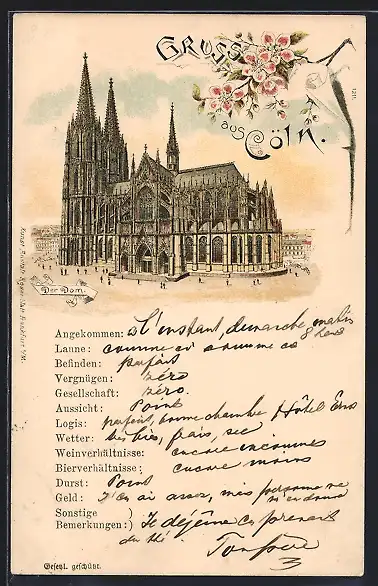 GRUSS
aus Cöln.
1211.
Der Dom.
Angekommen: à l'instant, dimanche matin
8 hres
Laune: comme ci comme ça
Befinden: parfait
Vergnügen: zéro
Gesellschaft: zéro.
Aussicht: Point
Logis: parfait, bonne chambre Hôtel Ernst
Wetter: très bien, frais, sec
Weinverhältnisse: encore inconnues
Bierverhältnisse: encore moins
Durst: Point
Geld: J'en ai assez, mais personne ne
m'en donne
Sonstige )
Bemerkungen: ) Je déjeune en prenant
du thé.
Ton père
Gesetzl. geschützt.